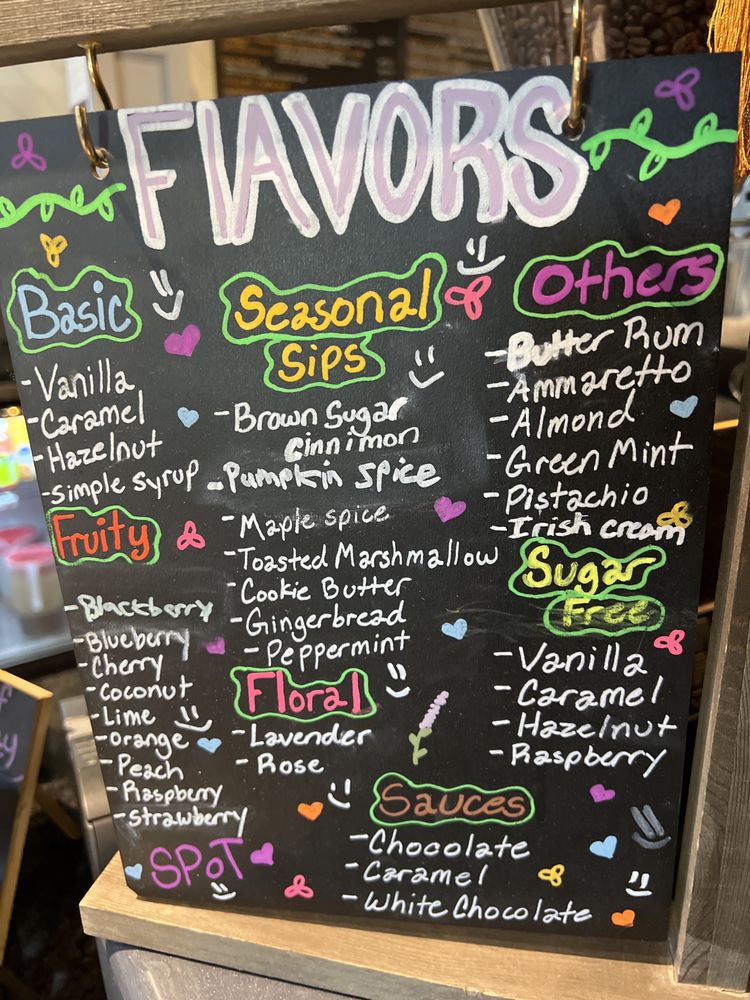 FlAVORS
Basic
-Vanilla
-Caramel
-Hazelnut
-simple syrup
Fruity
-Blackberry
-Blueberry
-Cherry
-Coconut
-Lime
-Orange
-Peach
-Raspberry
-strawberry
SPOT
Seasonal
Sips
-Brown Sugar
cinnimon
-Pumpkin spice
-Maple spice
-Toasted Marshmallow
-Cookie Butter
-Gingerbread
-Peppermint
Floral
-Lavender
-Rose
Others
-Butter Rum
-Ammaretto
-Almond
-Green Mint
-Pistachio
-Irish cream
Sugar
Free
-Vanilla
-Caramel
-Hazelnut
-Raspberry
Sauces
-Chocolate
-Caramel
-White Chocolate